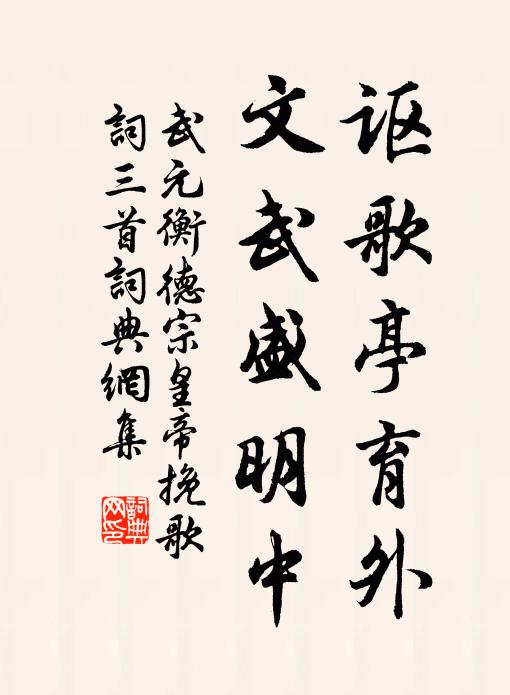 讴歌亭育外
文武盛明中
武元衡德宗皇帝挽歌
詞三首詞典網集
詞典
网印